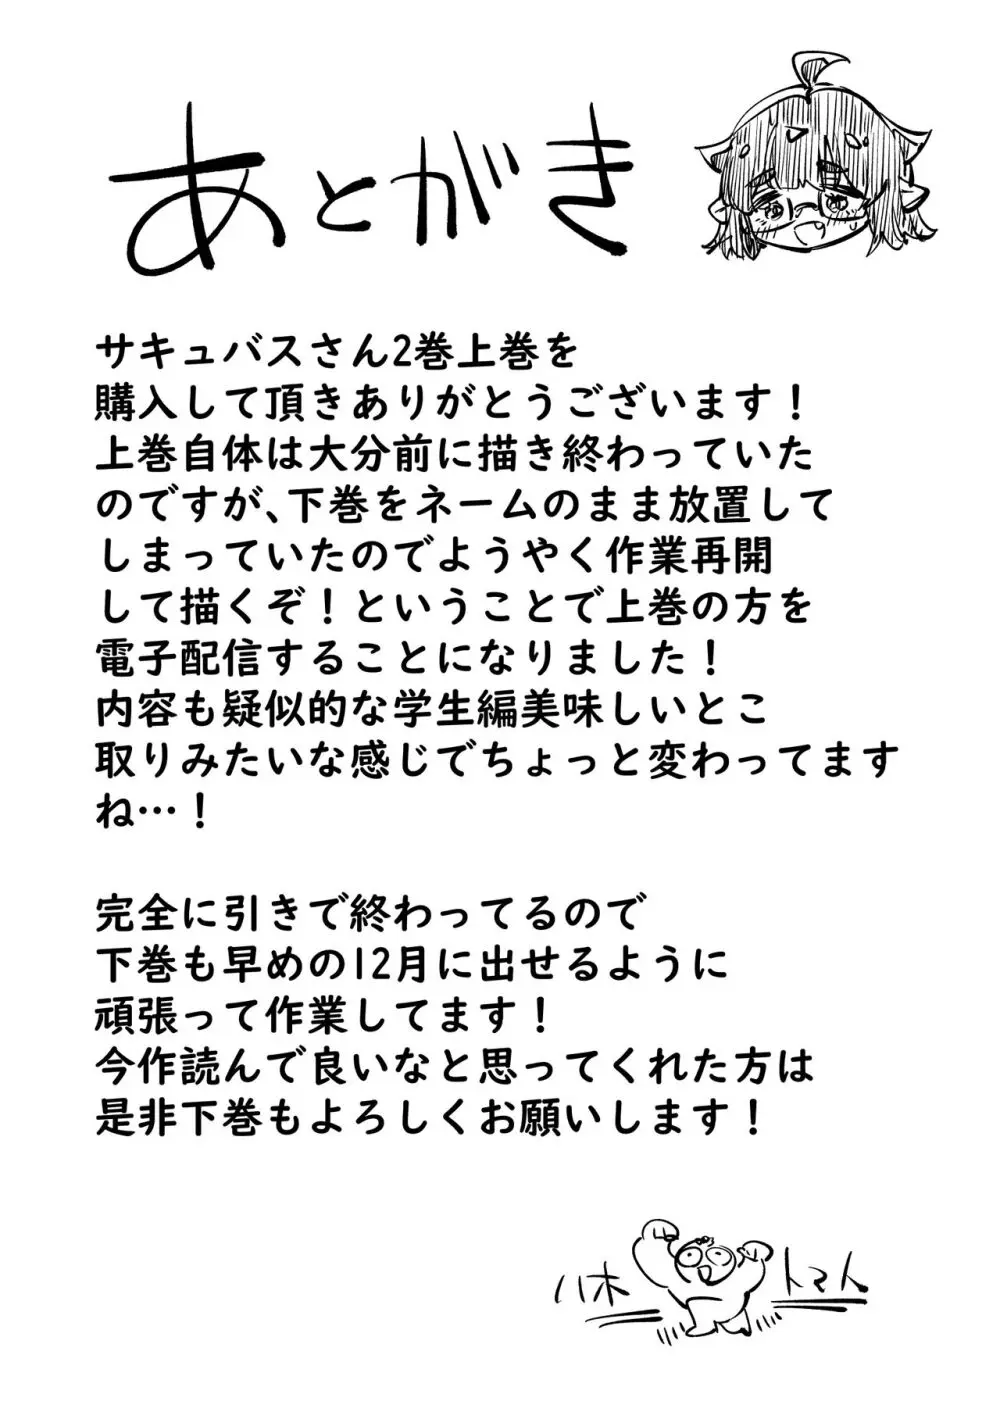 あとがき
サキュバスさん2巻上巻を
購入して頂きありがとうございます！
上巻自体は大分前に描き終わっていた
のですが、下巻をネームのまま放置して
しまっていたのでようやく作業再開
して描くぞ！ということで上巻の方を
電子配信することになりました！
内容も疑似的な学生編美味しいとこ
取りみたいな感じでちょっと変わってます
ね…！
完全に引きで終わってるので
下巻も早めの12月に出せるように
頑張って作業してます！
今作読んで良いなと思ってくれた方は
是非下巻もよろしくお願いします！
八木 トマト